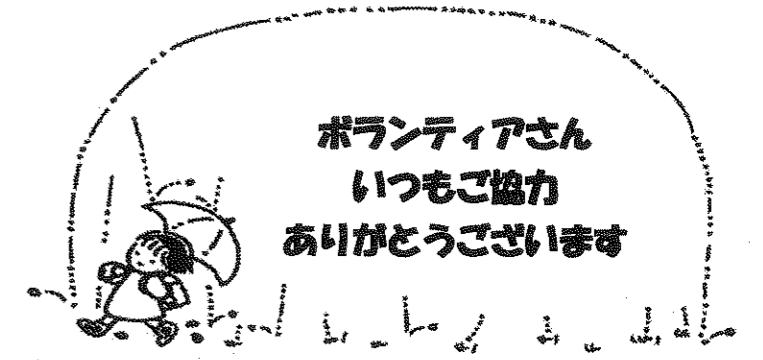 ボランティアさん
いつもご協力
ありがとうございます